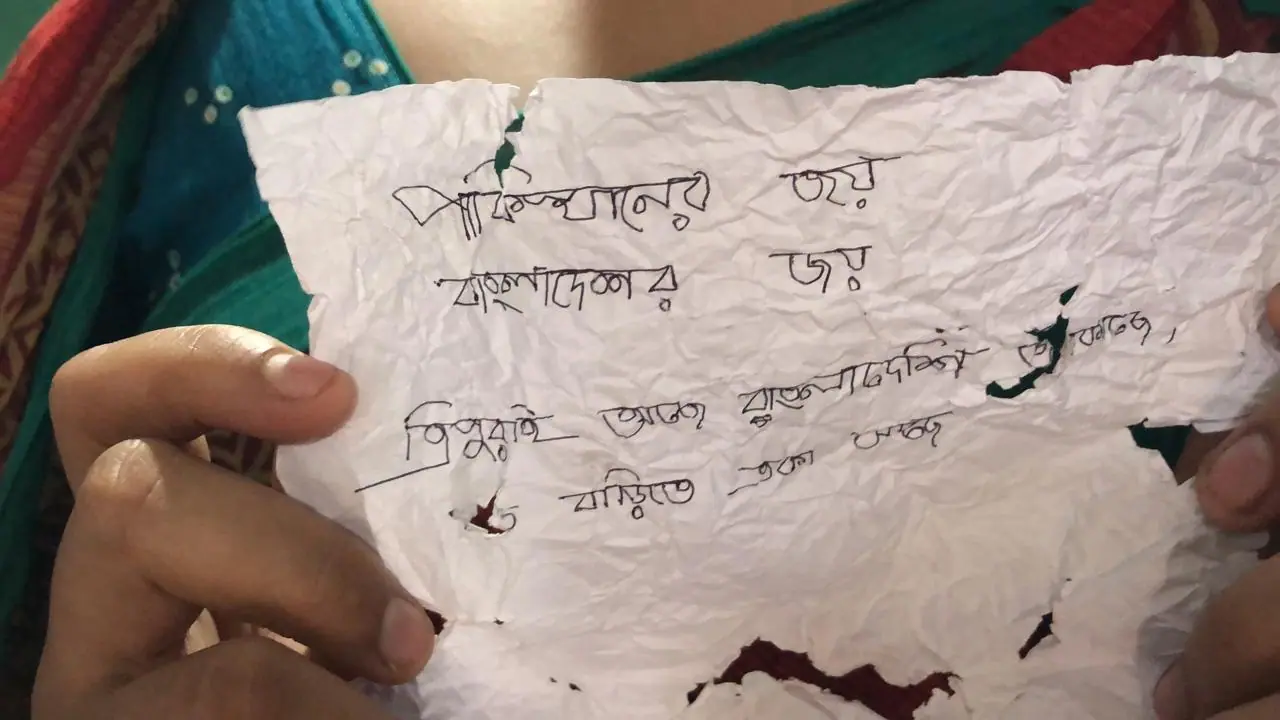 পাকিস্থানের জয়
বাংলাদেশর জয়
ত্রিপুরাই আজে বাংলাদেশি
বাড়িতে একা আছে